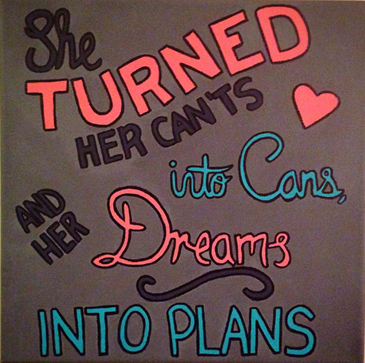 She
TURNED
HER CAN'TS
into Cans,
AND HER
Dreams
INTO PLANS